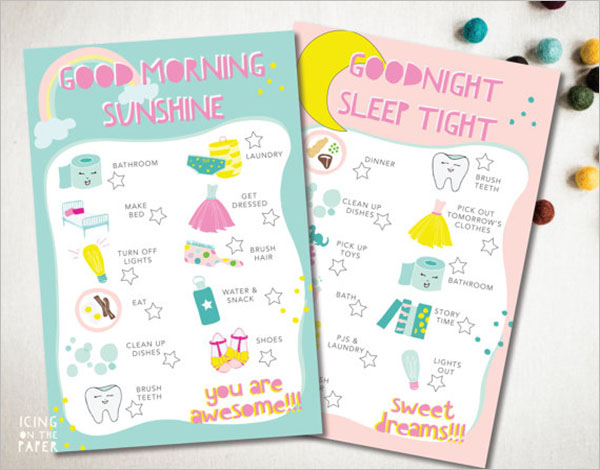 GOOD MORNING
SUNSHINE
BATHROOM
LAUNDRY
MAKE
BED
GET
DRESSED
TURN OFF
LIGHTS
BRUSH
HAIR
EAT
WATER &
SNACK
CLEAN UP
DISHES
SHOES
BRUSH
TEETH
you are
awesome!!!
GOODNIGHT
SLEEP TIGHT
DINNER
BRUSH
TEETH
CLEAN UP
DISHES
PICK OUT
TOMORROW'S
CLOTHES
PICK UP
TOYS
BATHROOM
BATH
STORY
TIME
PJS &
LAUNDRY
LIGHTS
OUT
sweet
dreams!!!
ICING
ON THE
PAPER